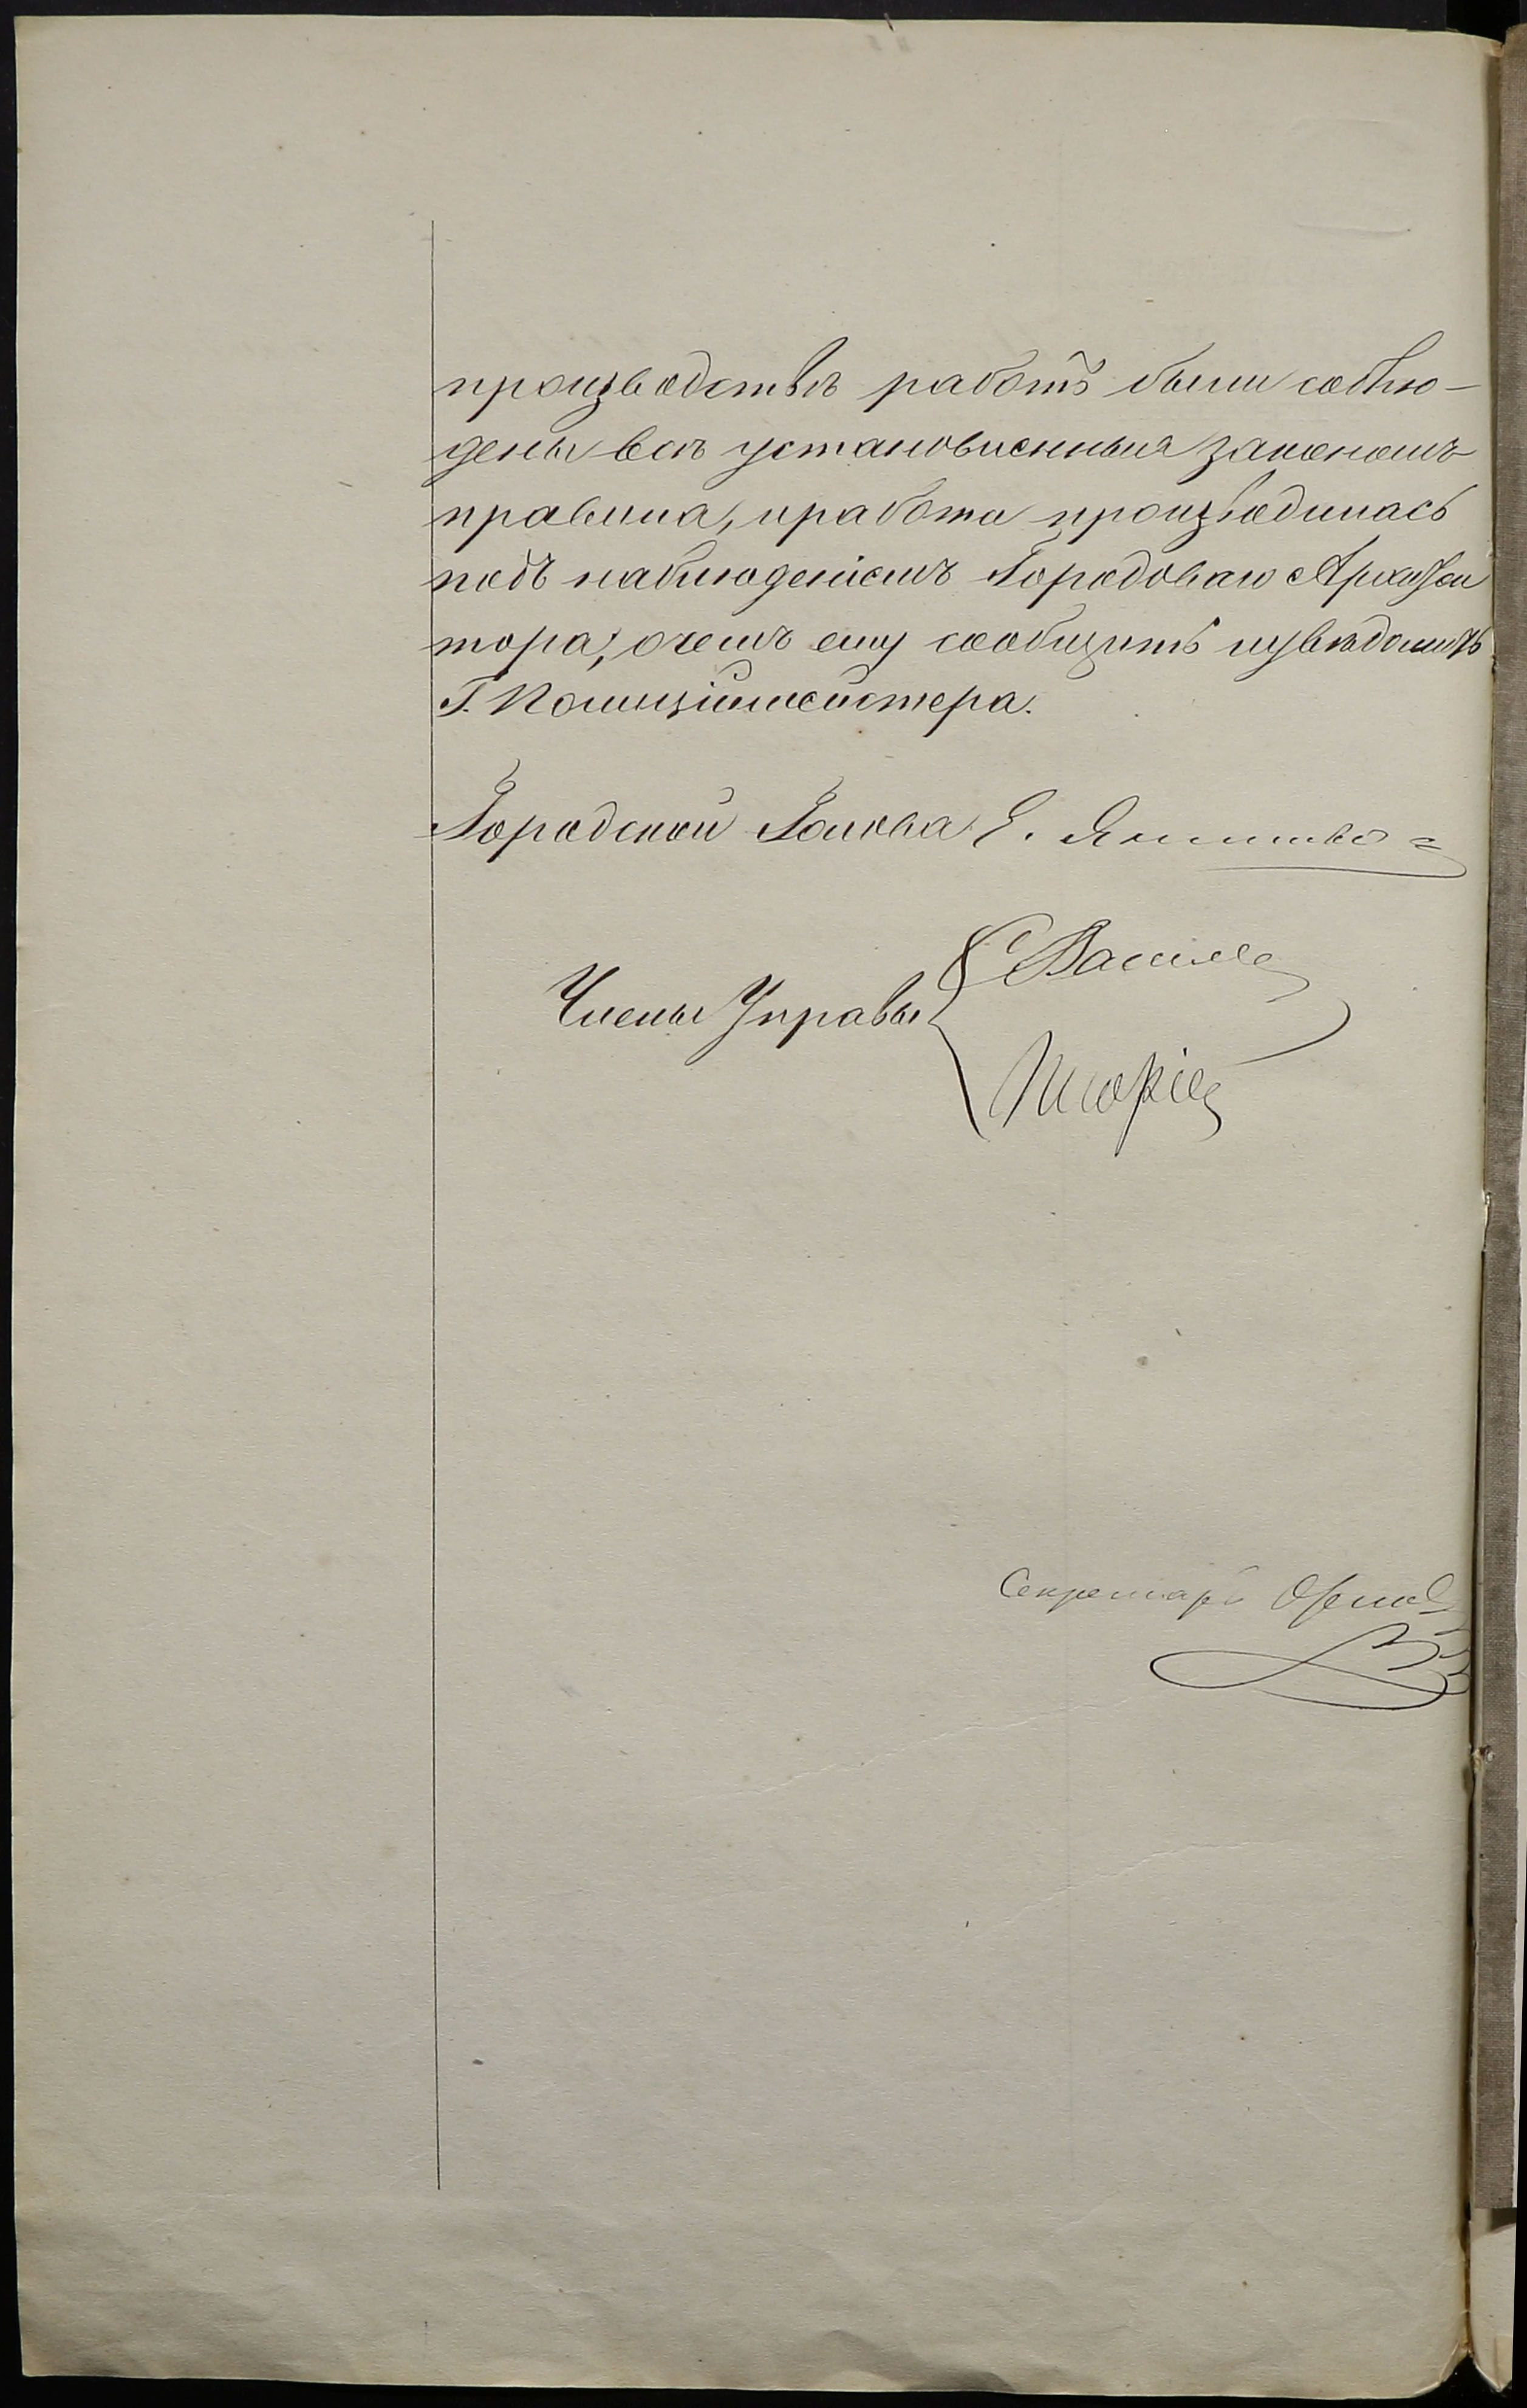 производствѣ работъ были соблю-
дены всѣ установленныя закономъ
правила, и работа производилась
подъ наблюденіемъ Городоваго Архитек
тора; о чемъ ему сообщить и увѣдомить
Г. Полиціймейстера.
Городской Голова Е.
Члены Управы
Секретарь